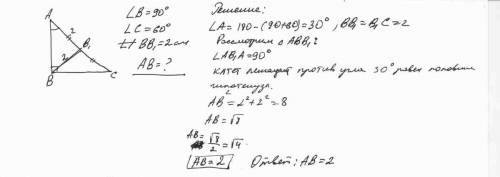 A
2
B₁
2
B
C
∠B=90°
∠C=60°
BB₁=2см
AB=?
Решение:
∠A=180-(90+60)=30°, BB₁=B₁C=2
Рассмотрим △ABB₁:
∠AB₁A=90°
катет лежащий против угла 30° равен половине
гипотенузы.
AB²=2²+2²=8
AB=√8
AB=√8/2=√4.
AB=2
Ответ: AB=2